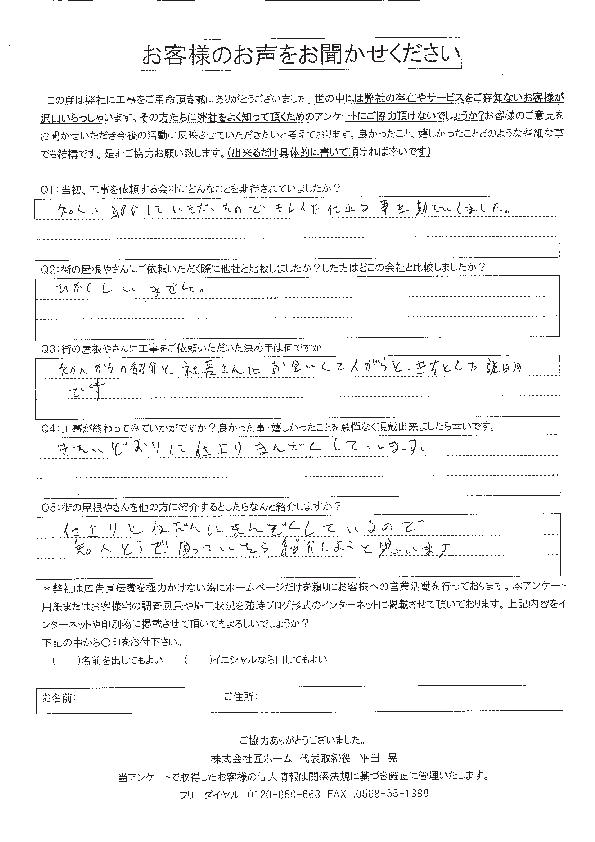 お客様のお声をお聞かせください
この度は弊社に工事をご用命頂き誠にありがとうございました。世の中には弊社の存在やサービスをご存知ないお客様が
沢山いらっしゃいます。その方たちに弊社をよく知って頂くためのアンケートにご協力頂けないでしょうか?お客様のご意見を
お聞かせいただき今後の活動に反映させていただきたいと考えております。良かったこと、嬉しかったことどのような些細な事
でも結構です。是非ご協力お願い致します。(出来るだけ具体的に書いて頂ければ幸いです)
Q1:当初、工事を依頼する会社にどんなことを期待されていましたか?
知人に紹介していただいたので きれいな仕上り
Q2:街の屋根やさんにご依頼いただく際に他社と比較しましたか?した方はどこの会社と比較しましたか?
ひかくしていません。
Q3:街の屋根やさんに工事をご依頼いただいた決め手は何ですか
知人からの紹介と 社長さんにお会いして人がらと
です
Q4:工事が終わってみていかがですか?良かった事・嬉しかったことを忌憚なく記載出来ましたら幸いです。
きたいどおりに仕上り まんぞくしています。
Q5:街の屋根やさんを他の方に紹介するとしたらなんと紹介しますか?
仕上りとねだんにまんぞくしているので
知人とうで困っていたら紹介しようと思います
*弊社は広告宣伝費を極力かけない為にホームページだけを頼りにお客様への営業活動を行っております。本アンケート
用紙またはお客様宅の調査風景や施工状況を随時ブログ形式のインターネットに掲載させて頂いております。上記内容をイ
ンターネットや印刷物に掲載させて頂いてもよろしいでしょうか?
下記の中から〇印をお付下さい。
( )名前を出してもよい ( )イニシャルなら出してもよい
お名前: ご住所:
ご協力ありがとうございました。
株式会社匠ホーム 代表取締役 平田 晃
当アンケートで取得したお客様の個人情報は関係法規に基づき厳正に管理いたします。
フリーダイヤル FAX